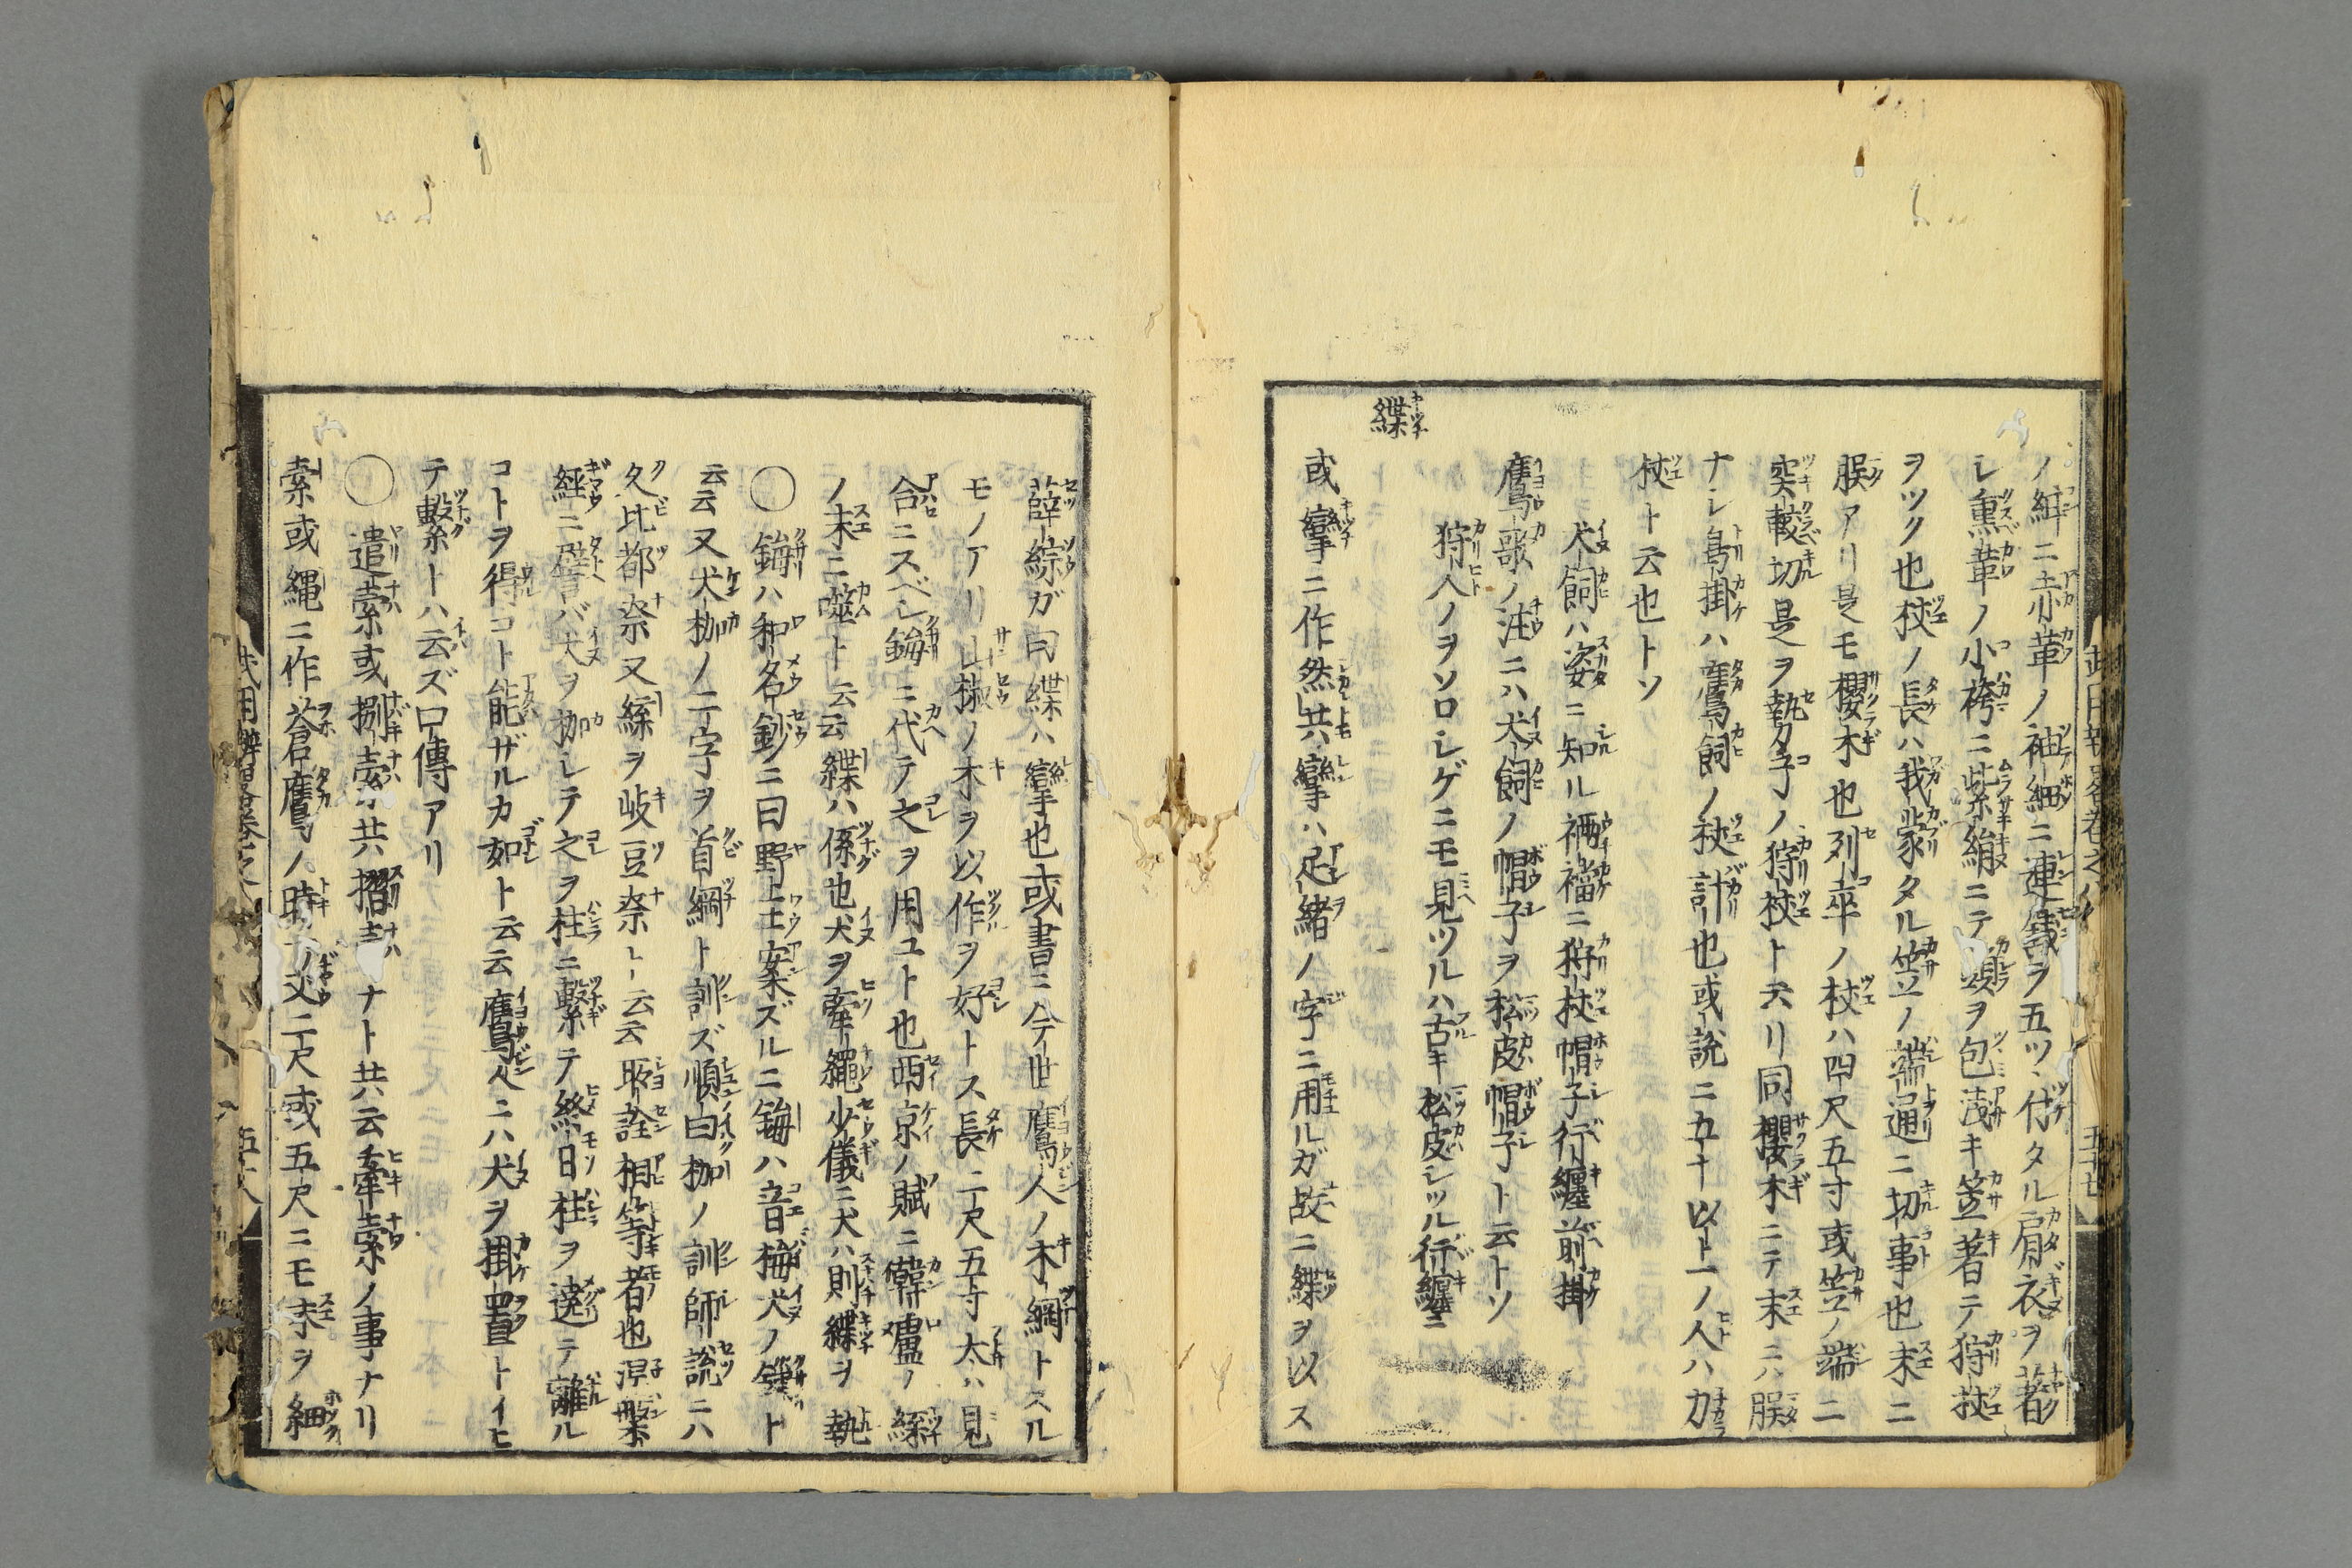 ノ紲ニ赤小革ノ袖細ニ連錢ヲ五ツ付タル肩衣ヲ著
シ熏革ノ小袴ニ紫絹ニテ頭ヲ包浅キ笠著テ狩杖
ヲツク也杖ノ長ハ我蒙タル笠ノ端通ニ切事也末ニ
朕アリ是モ櫻木也列卒ノ杖ハ四尺五寸或笠ノ端ニ
突較切是ヲ勢子ノ狩杖ト云リ同櫻木ニテ末ニハ朕
ナシ鳥掛ハ鷹飼ノ杖計也或説ニ五十以上ノ人ハ力
杖ト云也トソ
犬飼ハ姿ニ知ル裲襠ニ狩杖帽子行纏前掛
鷹歌ノ注ニハ犬飼ノ帽子ヲ松皮帽子ト云トソ
狩人ノヲソロシゲニモ見ツルハ古キ松皮シツル行纏ニ
緤
或攣ニ作然共攣ハ足緒ノ字ニ用ルガ故ニ緤ヲ以ス
薛綜ガ曰緤ハ攣也或書ニ今世鷹人ノ木綱トスル
モノアリ山椒ノ木ヲ以作ヲ好トス長二尺五寸太ハ見
合ニスベシ鋂ニ代テ之ヲ用ユト也西京ノ賦ニ韓盧ノ緤
ノ末ニ噬ト云云緤ハ係也犬ヲ牽繩少儀ニ犬ハ則緤ヲ執
〇鋂ハ和名鈔ニ曰野王案ズルニ鋂ハ音梅犬ノ鏁ト
云云又犬枷ノ二字ヲ首綱ト訓ズ順曰枷ノ訓師説ニハ
久比都奈又緤ヲ岐豆奈ト云云所詮相等者也涅槃
經ニ譬バ犬ヲ枷シテ之ヲ柱ニ繫テ終日柱ヲ遶テ離ル
コトヲ得コト能ザルカ如ト云云鷹足ニハ犬ヲ掛置トイヒ
テ繫トハ云ズ口傳アリ
〇遣索或捌索共摺索ナト共云牽索ノ事ナリ
索或縄ニ作蒼鷹ノ時ノ丈二尺或五尺ニモ末ヲ細
武用辨畧卷之八
五十七